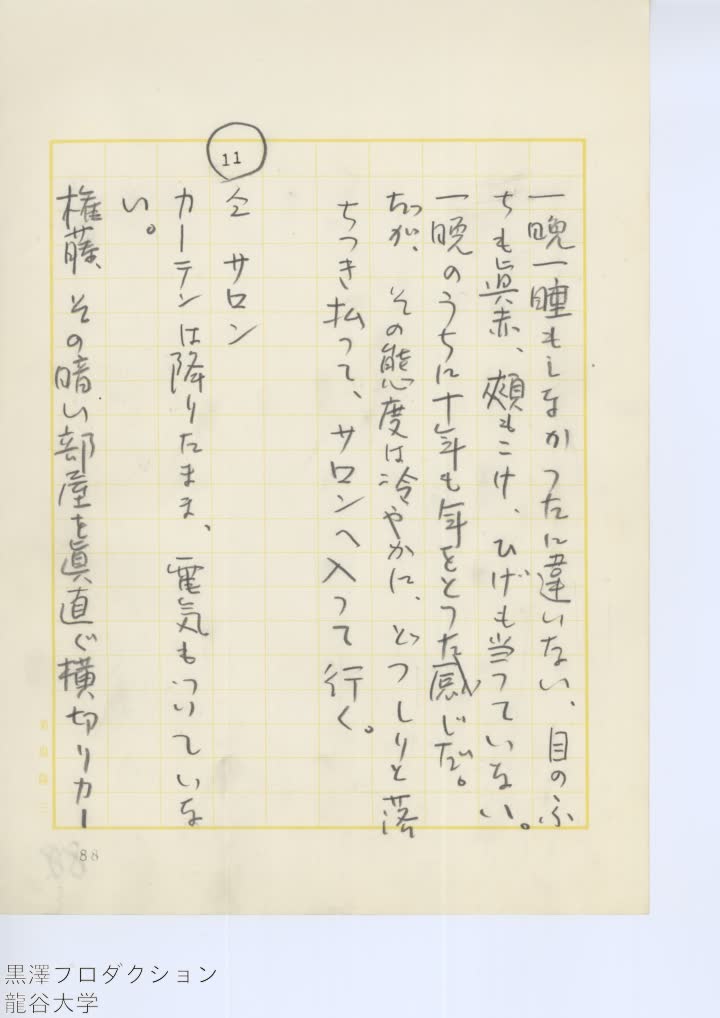 一晩一睡もしなかつたに違いない、目のふ
ちも眞赤、頰もこけ、ひげも当つていない。
一晩のうちに十年も年をとつた感じだ。
だが、その態度は冷やかに、どつしりと落
ちつき払つて、サロンへ入つて行く。
11
仝 サロン
カーテンは降りたまま、電気もついていな
い。
権藤、その暗い部屋を眞直ぐ横切りカー
88
黒澤プロダクション
龍谷大学